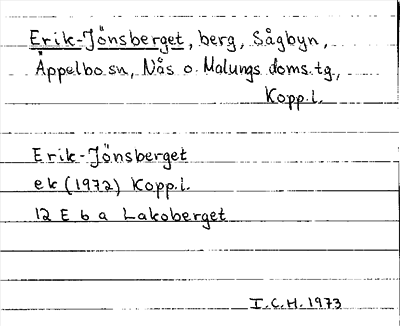 Erik-Jönsberget, berg, Sågbyn,
Äppelbo sn, Nås o. Malungs doms.tg,
Kopp.l.
Erik-Jönsberget
ek (1972) Kopp.l.
12 E 6 a Lakoberget
I.C.H. 1973